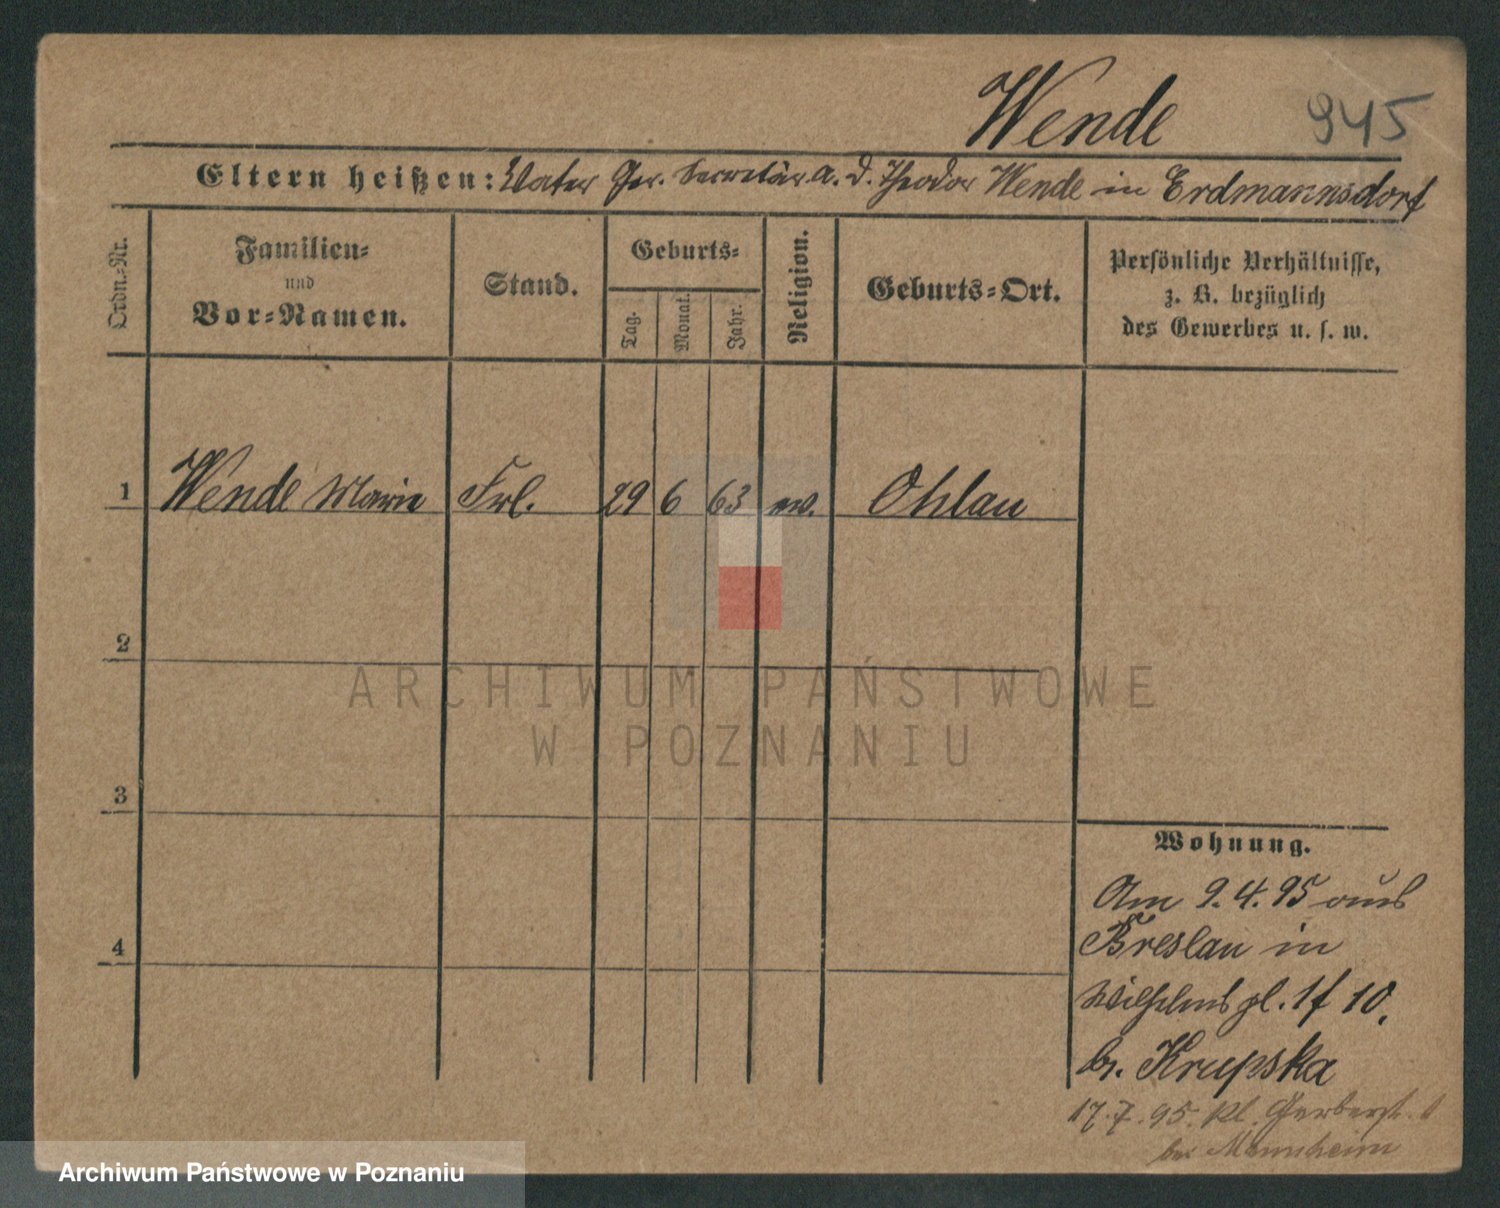 Wende 945
Eltern heißen: Vater Ger. Secretär a. D. Theodor Wende in Erdmannsdorf
Ordn.=Nr.
Familien=
und
Vor=Namen.
Stand.
Geburts=
Tag.
Monat.
Jahr.
Religion.
Geburts=Ort.
Persönliche Verhältnisse,
z. B. bezüglich
des Gewerbes u. s. w.
1 Wende Marie Frl. 29 6 63 ev. Ohlau
2
3
4
ARCHIWUM PAŃSTWOWE
W POZNANIU
Wohnung.
Am 9.4.95 aus
Breslau in
Wilhelmspl. 10.
br. Krupska
17.7.95. Kl. Gerberstr.
bei Mannheim
Archiwum Państwowe w Poznaniu